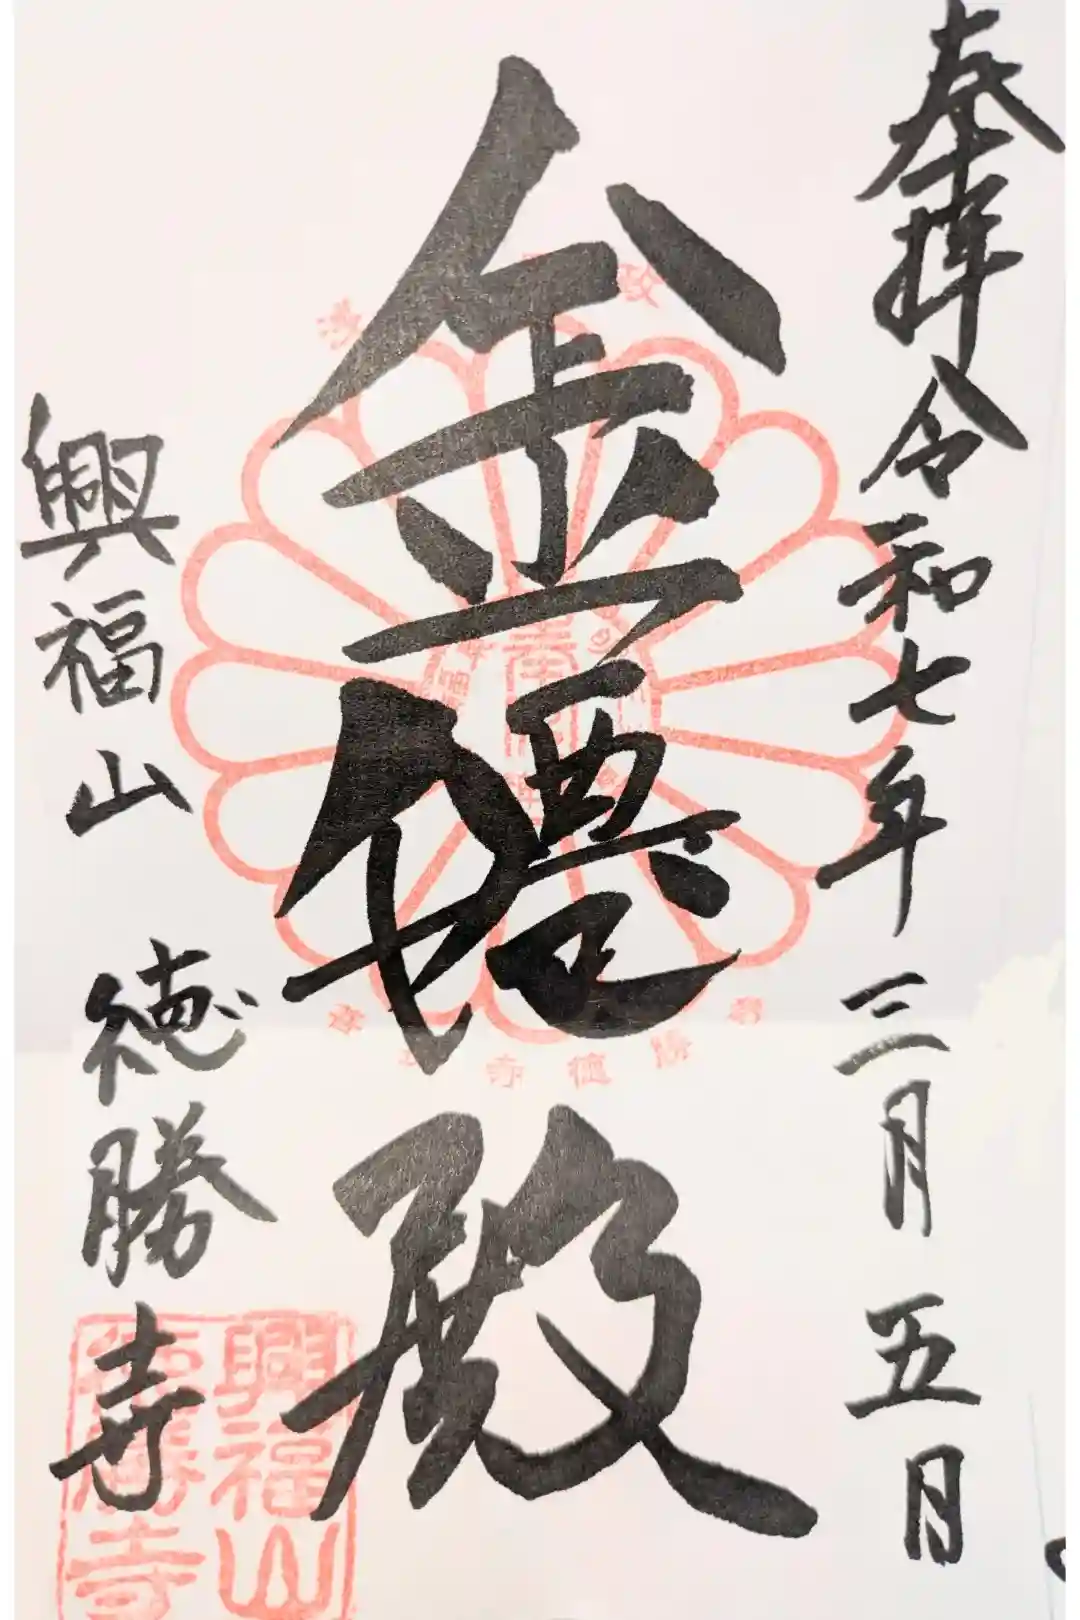 奉拝 令和七年三月五日
金僊殿
興福山 徳勝寺
興福山
徳勝寺